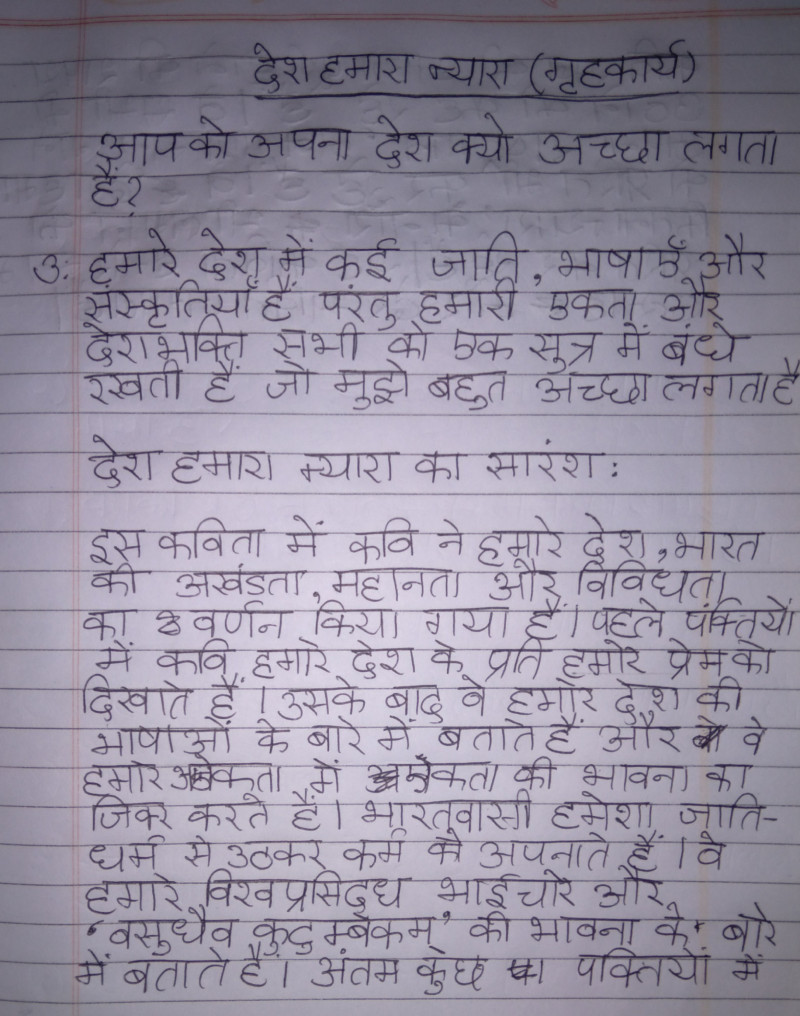 देश हमारा न्यारा (गृहकार्य)
आपको अपना देश क्यो अच्छा लगता
है?
उ: हमारे देश में कई जाति, भाषाएँ और
संस्कृतियाँ हैं परंतु हमारी एकता और
देशभक्ति सभी को एक सुत्र में बंधे
रखती हैं जो मुझे बहुत अच्छा लगता है
देश हमारा न्यारा का सारंश:
इस कविता में कवि ने हमारे देश, भारत
की अखंडता, महानता और विविधता
का वर्णन किया गया हैं। पहले पंक्तियों
में कवि हमारे देश के प्रति हमारे प्रेम को
दिखाते हैं। उसके बाद वे हमारे देश की
भाषाओं के बारे में बताते हैं और वे
हमारे में की भावना का
जिक्र करते हैं। भारतवासी हमेशा जाति-
धर्म से उठकर कर्म को अपनाते हैं। वे
हमारे विश्वप्रसिद्ध भाईचारे और
'वसुधैव कुटुम्बकम्' की भावना के बारे
में बताते हैं। अंतम कुछ पंक्तियों में